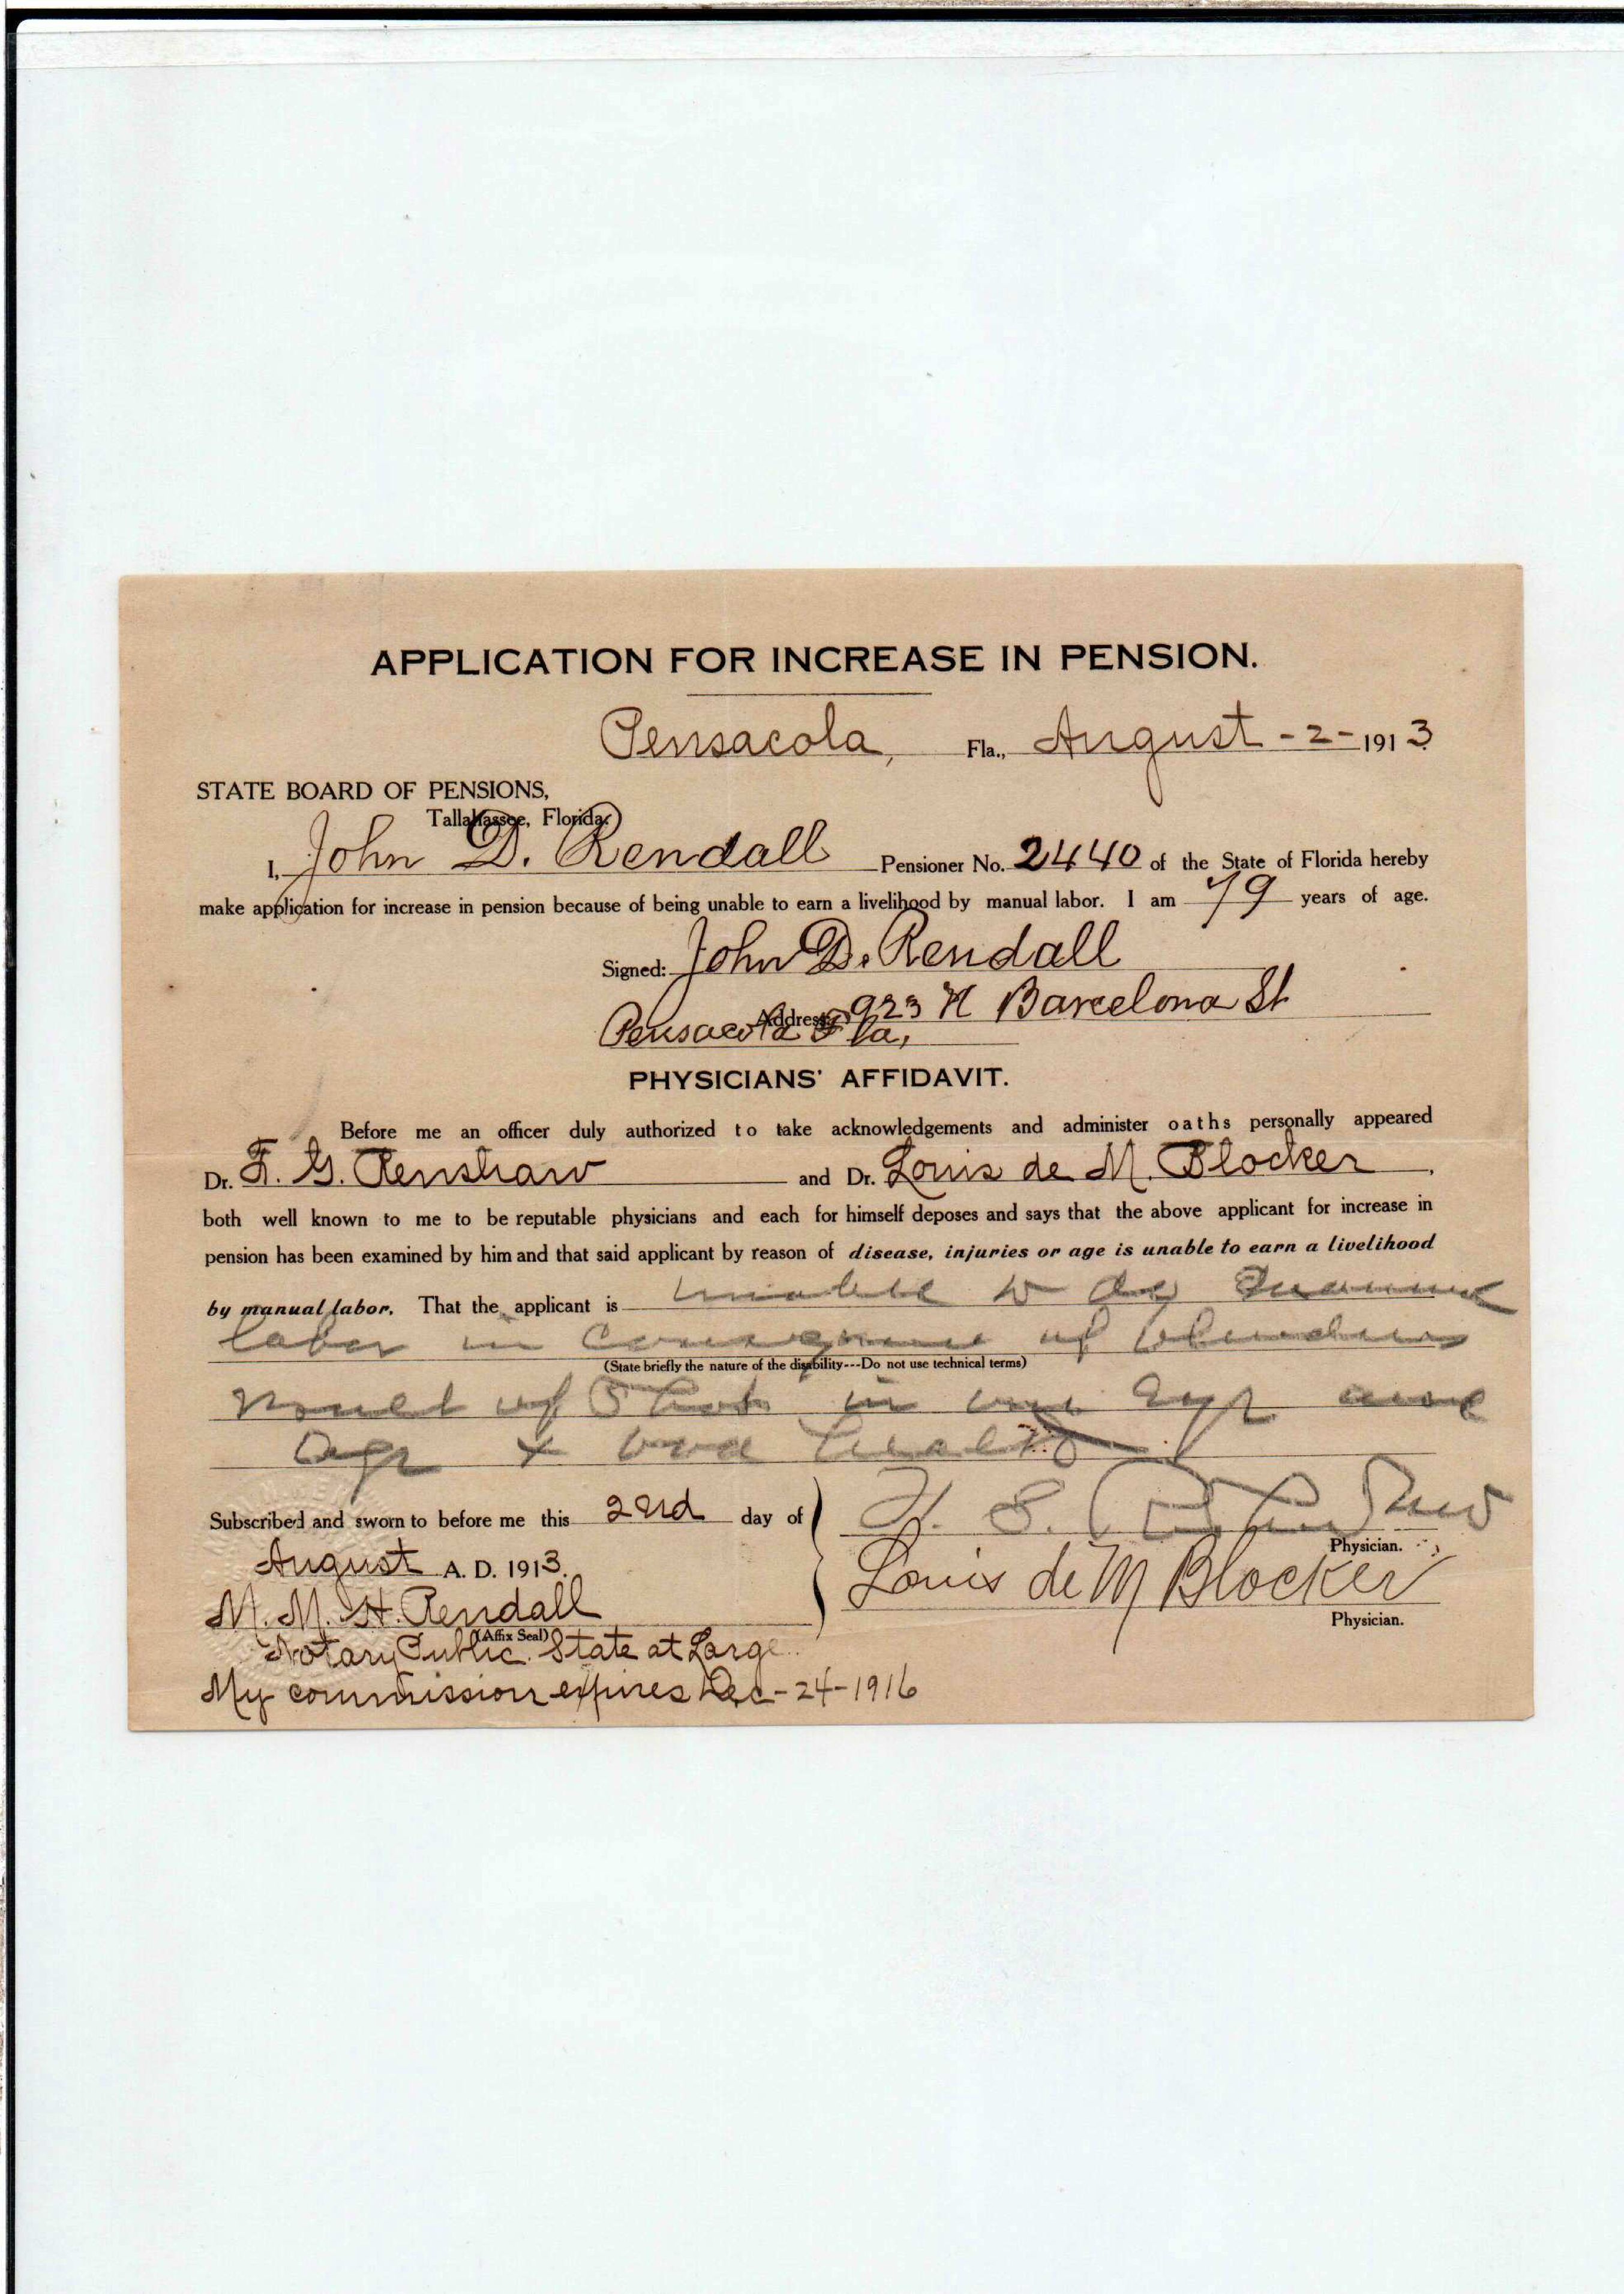 APPLICATION FOR INCREASE IN PENSION.
Pensacola, Fla., August - 2 - 1913
STATE BOARD OF PENSIONS,
Tallahassee, Florida:
I, John D. Rendall Pensioner No. 2440 of the State of Florida hereby
make application for increase in pension because of being unable to earn a livelihood by manual labor. I am 79 years of age.
Signed: John D. Rendall
Address: 923 N Barcelona St
Pensacola Fla,
PHYSICIANS' AFFIDAVIT.
Before me an officer duly authorized to take acknowledgements and administer oaths personally appeared
Dr. F. G. Renshaw and Dr. Louis de M. Blocker,
both well known to me to be reputable physicians and each for himself deposes and says that the above applicant for increase in
pension has been examined by him and that said applicant by reason of disease, injuries or age is unable to earn a livelihood
by manual labor. That the applicant is unable to do manual
labor in consequence of blindness
(State briefly the nature of the disability---Do not use technical terms)
result of in one eye and
age & bad health
Subscribed and sworn to before me this 22nd day of
August A. D. 1913.
Physician.
Louis de M Blocker
Physician.
M. M. H. Rendall
(Affix Seal)
Notary Public. State at Large.
My commission expires Dec - 24 - 1916